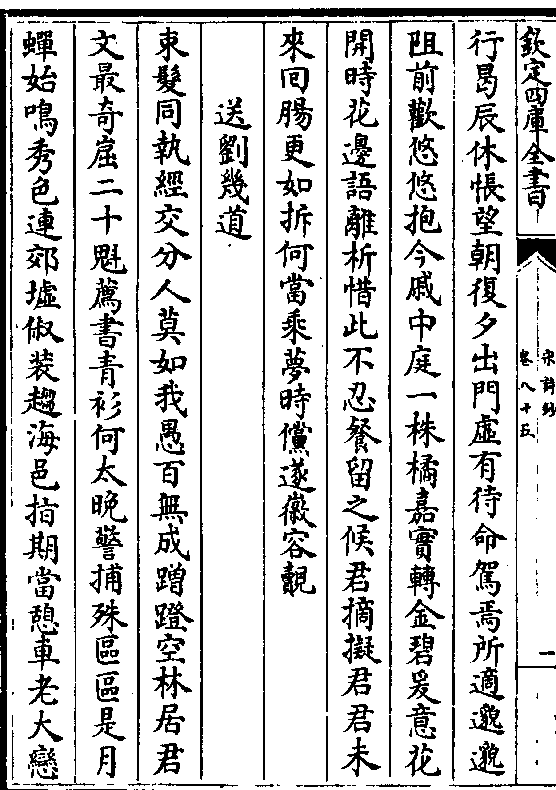 欽定四庫全書
宋詩鈔
卷八十五
一
行曷辰休悵望朝復夕出門虛有待命駕焉所適邈邈
阻前歡悠悠抱今戚中庭一株橘嘉實轉金碧爰意花
開時花邊語離析惜此不忍餐留之候君摘擬君君未
來回腸更如拆何當乘夢時儻遂徽容覿
送劉幾道
束髮同執經交分人莫如我愚百無成蹭蹬空林居君
文最奇崛二十魁薦書青衫何太晚警捕殊區區是月
蟬始鳴秀色連郊墟俶装趨海邑指期當憩車老大戀